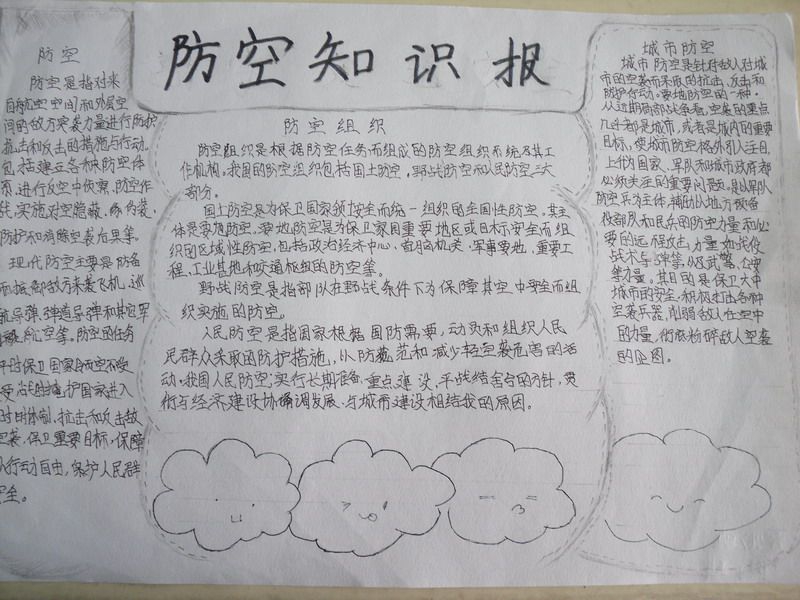 防空知识报
防空
防空是指对来
自防空空间和外层空
间的敌方突袭力量进行防护
抗击和反击的措施与行动。
包括建立各种防空体
系,进行反空中侦察,防空作
战,实施对空隐蔽、伪装、
防护和消除空袭后果等。
现代防空主要是防备
和抵御敌方来袭飞机、巡
航导弹、弹道导弹和其它军
航空等。防空的任务
平时保卫国家
护国家进入
战时体制、抗击和反击敌
空袭、保卫重要目标,保障
行动自由,保护人民群
安全。
防空组织
防空组织是根据防空任务而组成的防空组织系统及其工
作机构。我国的防空组织包括国土防空,野战防空和人民防空三大
部分。
国土防空是为保卫国家领土安全而统一组织的全国性防空。其主
体是要地防空。要地防空是为保卫国家重要地区或目标安全而组
织的区域性防空,包括政治经济中心、首脑机关、军事要地、重要工
程、工业基地和交通枢纽的防空等。
野战防空是指部队在野战条件下为保障其空中安全而组
织实施的防空。
人民防空是指国家根据国防需要,动员和组织人民
民群众采取的防护措施,以防范和减少轻空袭危害的活
动。我国人民防空实行长期准备、重点建设、平战结合的方针,贯
彻与经济建设协调发展、与城市建设相结合的原因。
城市防空
城市防空是针对敌人对城
市的空袭而采取的抗击、反击和
防护行动。要地防空的一种。
从近期局部战争看,空袭的重点
几乎都是城市,或者是城内的重要
目标,使城市防空格外引人注目,
上升为国家、军队和城市政府都
必须关注的重要问题。是以军队
防空兵为主体,辅助以地方预备
役部队和民兵的防空力量和必
要的远程攻击力量,如我役
战术导弹等,以区武警、公安
等力量。其目的是保卫大中
城市的安全,积极打击各种
空袭兵器,削弱敌人在空中
的力量,彻底粉碎敌人空袭
的企图。